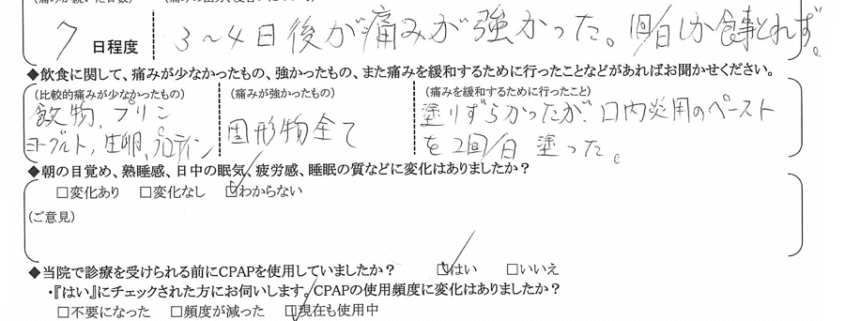 7 日程度
3〜4日後が痛みが強かった。1回/日しか食事とれず。
◆飲食に関して、痛みが少なかったもの、強かったもの、また痛みを緩和するために行ったことなどがあればお聞かせください。
(比較的痛みが少なかったもの)
飲物、プリン
ヨーグルト、生卵、プロテイン
(痛みが強かったもの)
固形物全て
(痛みを緩和するために行ったこと)
塗りずらかったが、口内炎用のペースト
を2回/日 塗った。
◆朝の目覚め、熟睡感、日中の眠気、疲労感、睡眠の質などに変化はありましたか?
□変化あり □変化なし ☑わからない
(ご意見)
◆当院で診療を受けられる前にCPAPを使用していましたか? ☑はい □いいえ
・『はい』にチェックされた方にお伺いします。CPAPの使用頻度に変化はありましたか?
□不要になった □頻度が減った ☑現在も使用中